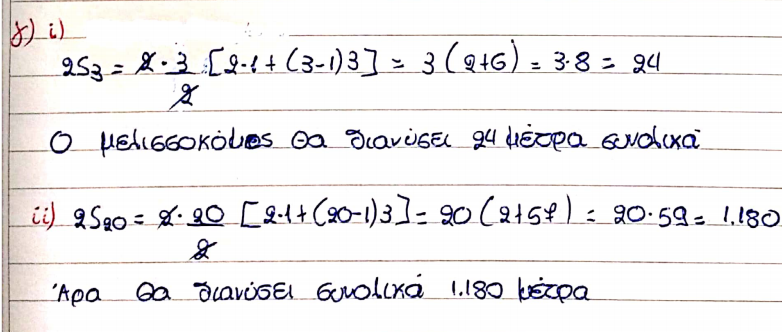 γ) i)
2S₃ = 2·3/2 [2·1+(3-1)3] = 3(2+6) = 3·8 = 24
Ο μελισσοκόμος θα διανύσει 24 μέτρα συνολικά
ii) 2S₂₀ = 2·20/2 [2·1+(20-1)3] = 20(2+57) = 20·59 = 1.180
Άρα θα διανύσει συνολικά 1.180 μέτρα